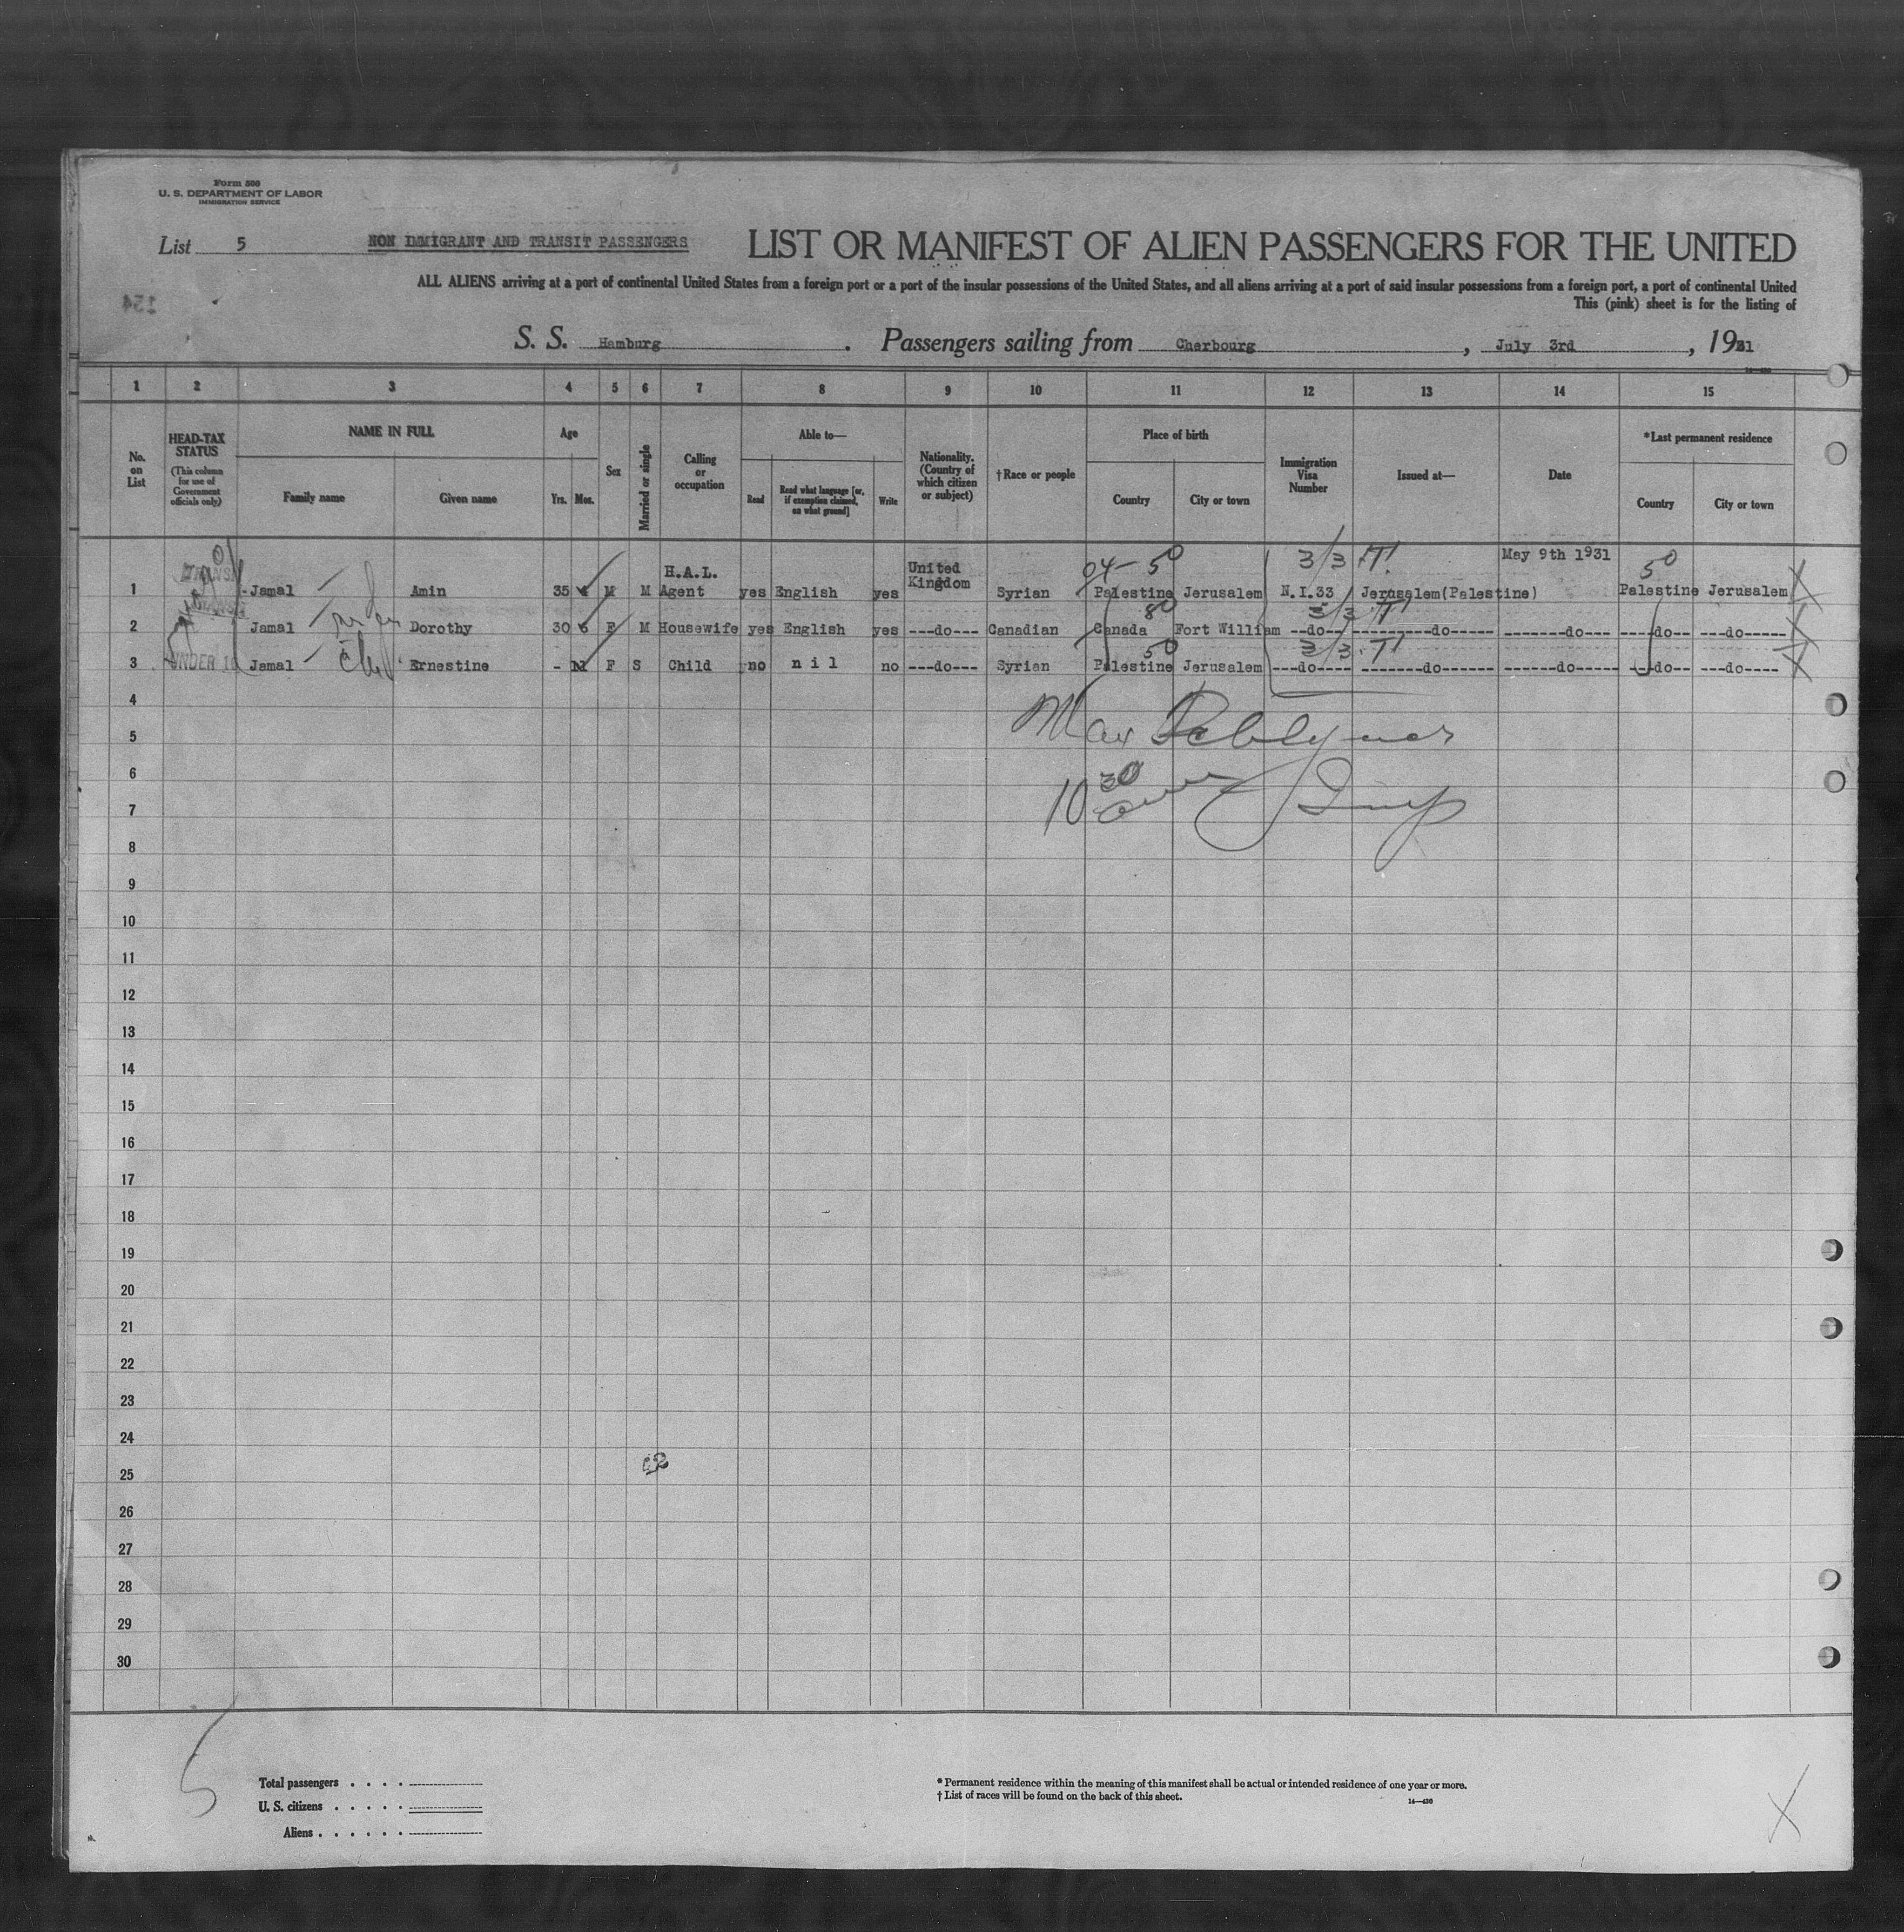 Form 500
U. S. DEPARTMENT OF LABOR
IMMIGRATION SERVICE
List 5 NON IMMIGRANT AND TRANSIT PASSENGERS LIST OR MANIFEST OF ALIEN PASSENGERS FOR THE UNITED
ALL ALIENS arriving at a port of continental United States from a foreign port or a port of the insular possessions of the United States, and all aliens arriving at a port of said insular possessions from a foreign port, a port of continental United
This (pink) sheet is for the listing of
S. S. Hamburg . Passengers sailing from Cherbourg , July 3rd , 1931
1 2 3 4 5 6 7 8 9 10 11 12 13 14 15
No. on List
HEAD-TAX STATUS (This column for use of Government officials only)
NAME IN FULL
Family name Given name
Age
Yrs. Mos.
Sex
Married or single
Calling or occupation
Able to—
Read Read what language [or, if exemption claimed, on what ground] Write
Nationality. (Country of which citizen or subject)
†Race or people
Place of birth
Country City or town
Immigration Visa Number
Issued at—
Date
*Last permanent residence
Country City or town
1 Jamal Amin 35 M M H.A.L. Agent yes English yes United Kingdom Syrian Palestine Jerusalem N.I.33 Jerusalem(Palestine) May 9th 1931 Palestine Jerusalem
2 Jamal Dorothy 30 6 F M Housewife yes English yes ---do--- Canadian Canada Fort William --do-- ---------do------ -------do---- ----do-- ---do-----
3 UNDER 16 Jamal Ernestine - 11 F S Child no nil no ---do--- Syrian Palestine Jerusalem ---do---- -------do------- ------do----- ---do-- ---do----
4
5 Max
6
7 10 30
8
9
10
11
12
13
14
15
16
17
18
19
20
21
22
23
24
25
26
27
28
29
30
5
Total passengers . . . .
U. S. citizens . . . . .
Aliens . . . . . .
* Permanent residence within the meaning of this manifest shall be actual or intended residence of one year or more.
† List of races will be found on the back of this sheet.
14—430